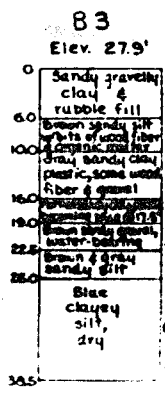 83
Elev. 27.9'
0
Sandy gravelly
clay &
rubble fill
6.0
Brown sandy silt
bits of wood fiber
& organic matter
10.0
Gray sandy clay
plastic, some wood
fiber & gravel
16.0
becoming blue @ 17.5'
19.0
Brown sandy gravel,
water-bearing
22.5
Brown & gray
sandy silt
26.0
Blue
clayey
silt,
dry
38.5